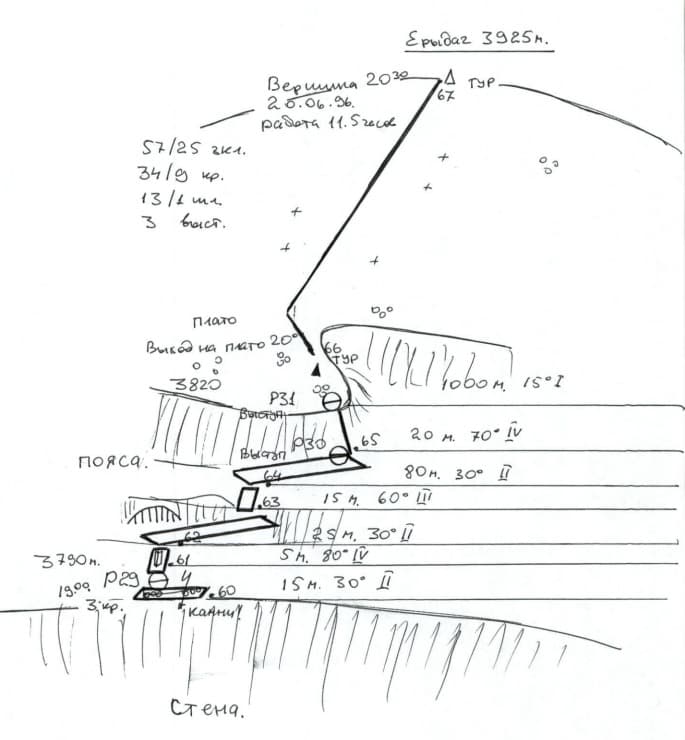 Ерыдаг 3925м.
Вершина 20³⁰
26.06.96.
работа 11.5 часов
ТУР
67
57/25 зкл.
34/9 кр.
13/1 шл.
3 выст.
плато
Выход на плато 20°°
66
ТУР
3820
1000 м. 15° I
Р31
Выступ
Р30
.65
20 м. 70° IV
Выступ
ПОЯСА.
.64
80м. 30° II
.63
15 м. 60° III
.62
25 м. 30° II
3790м.
.61
5 м. 80° IV
19⁰⁰
Р29
.60
15 м. 30° II
3 кр.
Стена.